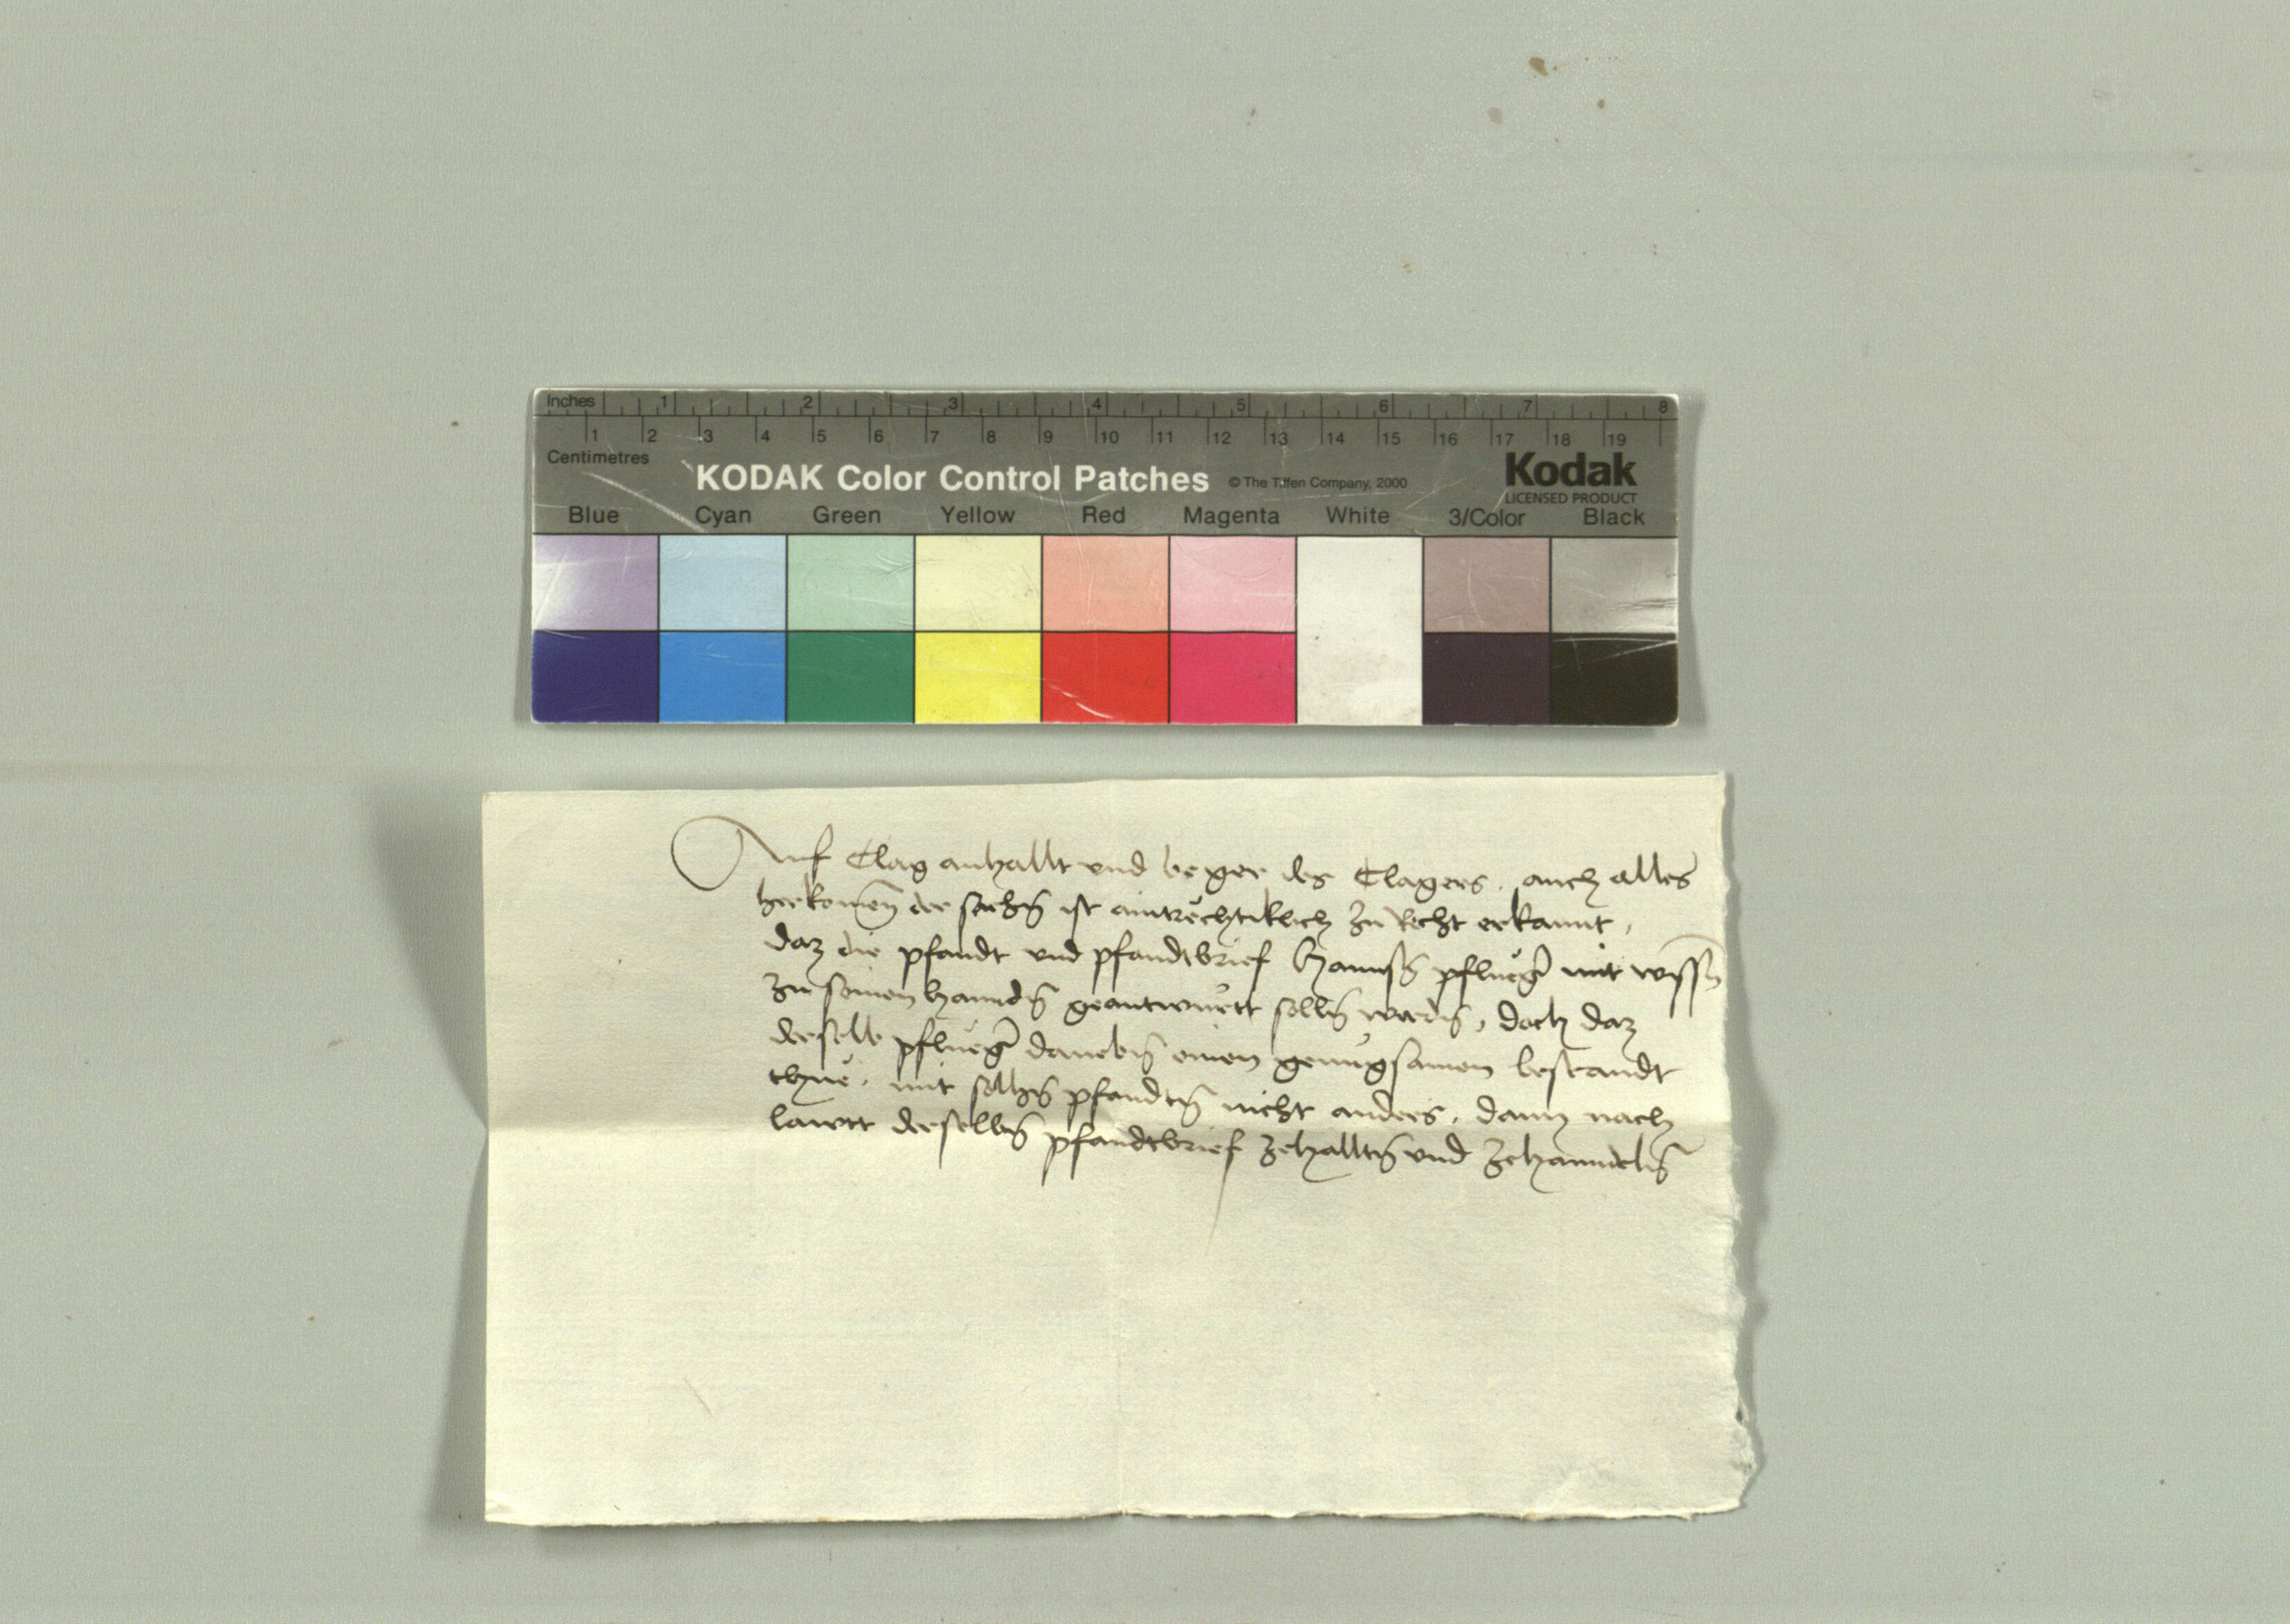 Inches 1 2 3 4 5 6 7 8
1 2 3 4 5 6 7 8 9 10 11 12 13 14 15 16 17 18 19
Centimetres
KODAK Color Control Patches © The Tiffen Company, 2000 Kodak
LICENSED PRODUCT
Blue Cyan Green Yellow Red Magenta White 3/Color Black
Auf Clag anhallt vnd beger des Clagers. auch alles
herkomen der sachn ist aintrechtiklich zu Recht erkannt,
daz die pfandt vnd pfandtbrief Hannsn pflueger mit wissn
zu seinen hanndn geantwurtt solln werdn, doch daz
derselb pflueger danebn einen genugsamen bestandt
thue. mit solhn pfandtn nicht anders. dann nach
lawtt derselbn pfandtbrief zehalltn vnd zehanndeln